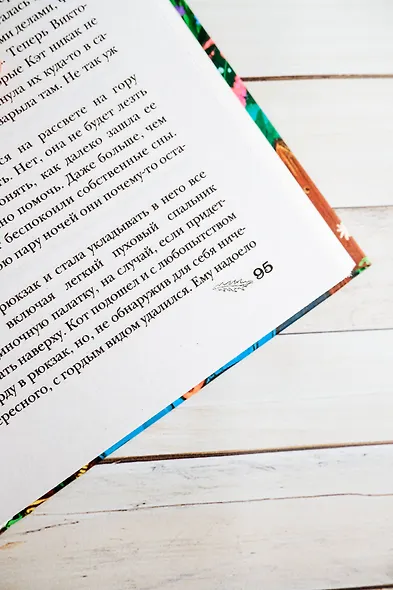 алась
ми делами, ч
Теперь Викто-
орые Кэт никак не
нула их куда-то в са-
варыла там. Не так уж
ся на рассвете на гору
ть. Нет, она не будет лезть
онять, как далеко зашла ее
но помочь. Даже больше, чем
беспокоили собственные сны.
ою пару ночей они почему-то оста-
рюкзак и стала укладывать в него все
включая легкий пуховый спальник
диночную палатку, на случай, если придет-
ать наверху. Кот подошел и с любопытством
рду в рюкзак, но, не обнаружив для себя ниче-
ересного, с гордым видом удалился. Ему надоело
95